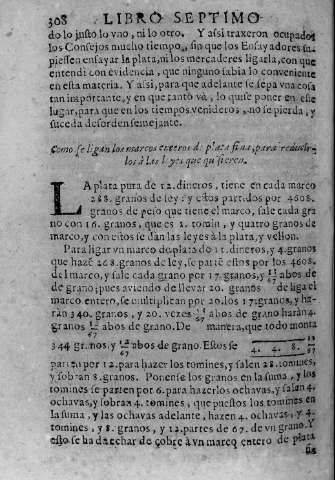 308 LIBRO SEPTIMO
do lo justo lo vno, ni lo otro. Y assi traxeron ocupados
los Consejos mucho tiempo, sin que los Ensayadores su-
piessen ensayar la plata, ni los mercaderes ligarla, con que
entendi con evidencia, que ninguno sabia lo conveniente
en esta materia. Y assi, para que adelante se sepa vna cosa
tan importante, y en que tanto và, lo quise poner en este
lugar, para que en los tiempos venideros, no se pierda, y
suceda desorden semejante.
Como se ligan los marcos enteros de plata fina, para reducir-
los à las leyes que quisieren.
LA plata pura de 12. dineros, tiene en cada marco
288. granos de ley: y estos partidos por 4608.
granos de peso que tiene el marco, sale cada gra
no con 16. granos, que es 1. tomin, y quatro granos de
marco, y con estos se dan las leyes à la plata, y vellon.
Para ligar vn marco de plata de 11. dineros, y 4. granos
que haze 268. granos de ley, se parte estos por los 4608.
del marco, y sale cada grano por 17. granos, y 13/67 abos de
de grano; pues aviendo de llevar 20. granos de liga el
marco entero, se multiplican por 20. los 17. granos, y ha-
rán 340. granos, y 20. vezes 13/67 abos de grano harán 4.
granos abos de grano. De manera, que todo monta
344 granos, y abos de grano. Estos se 4. 4. 8.
parten por 12. para hazer los tomines, y salen 28. tomines,
y sobran 8. granos. Ponense los granos en la suma, y los
tomines se parten por 6. para hazerlos ochavas, y salen 4.
ochavas, y sobran 4. tomines, que puestos los tomines en
la suma, y las ochavas adelante, hazen 4. ochavas, y 4.
tomines, y 8. granos, y 12. partes de 67. de vn grano. Y
esto se ha de echar de cobre à vn marco entero de plata